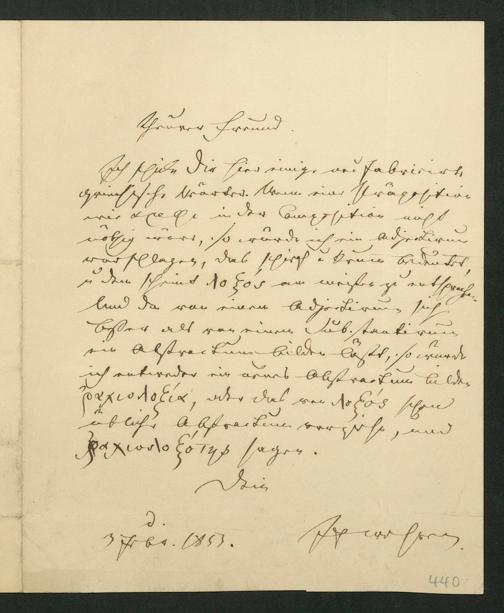 Theurer Freund.
Ich schicke Dir hier einige neu fabricirte
griechische Wörter. Wenn eine Präposition
wie in der Composition nicht
nöthig wäre, so würde ich ein Adjectivum
vorschlagen, das schief u krum bedeutet,
u dem scheint λοξός am meisten zu entsprechen.
Und da von einem Adjectivum sich
besser als von einem Substantivum
ein Abstractum bilden läßt, so würde
ich entweder ein neues Abstractum bilden
ῥαχιολοξία, oder das von λοξός schon
übliche Abstractum vorziehn, und
ῥαχιολοξότης sagen.
Dein
d.
3 Febr. 1853.
440